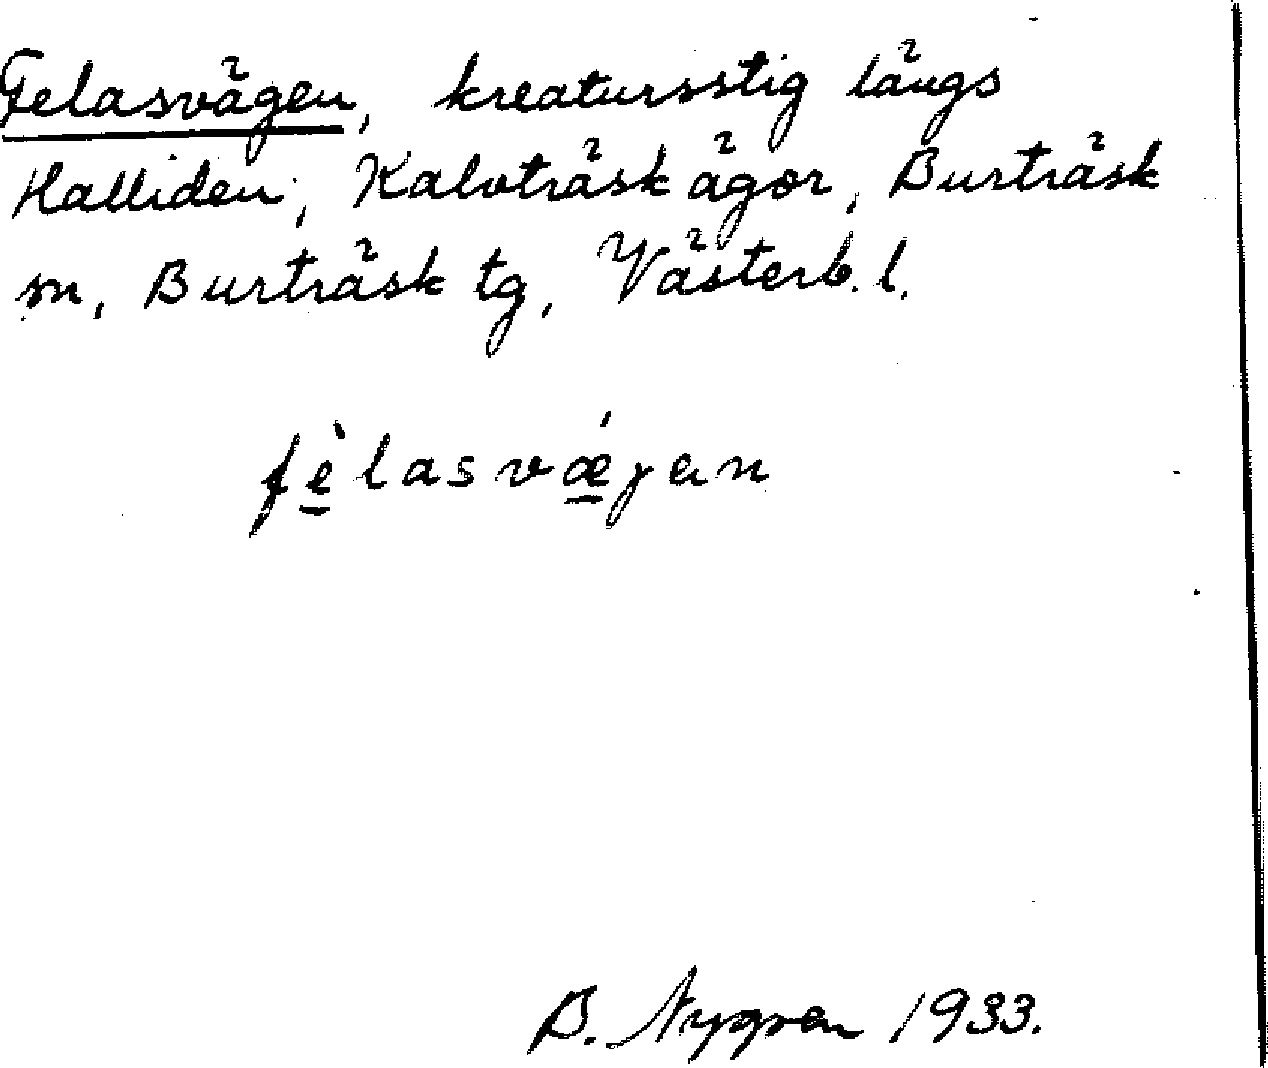 Felasvägen, kreatursstig längs
Halliden, Kalvträsk ägor, Burträsk
sn, Burträsk tg, Västerb. l.
fè̱lasvǽ̱jen
B. Nygren 1933.